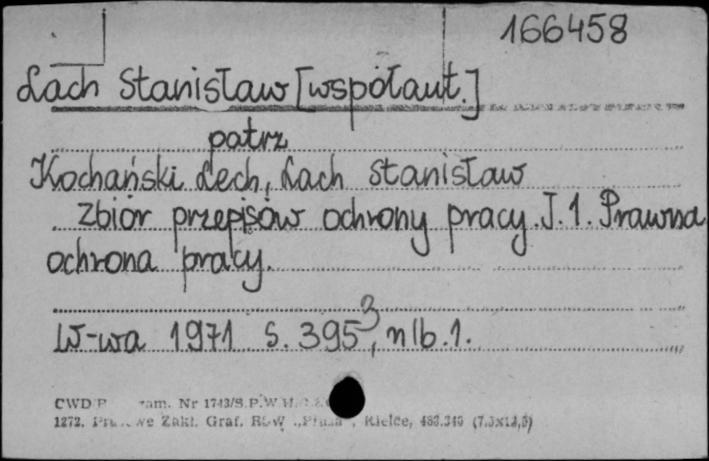 166458
Lach Stanisław [współaut.]
patrz
Kochański Lech, Lach Stanisław
Zbiór przepisów ochrony pracy. T. 1. Prawna
ochrona pracy.
W-wa 1971 s. 395, 3 nlb. 1.
CWD zam. Nr 1743/S.P.W.
1272. Zakł. Graf. RSW „Prasa", Kielce,